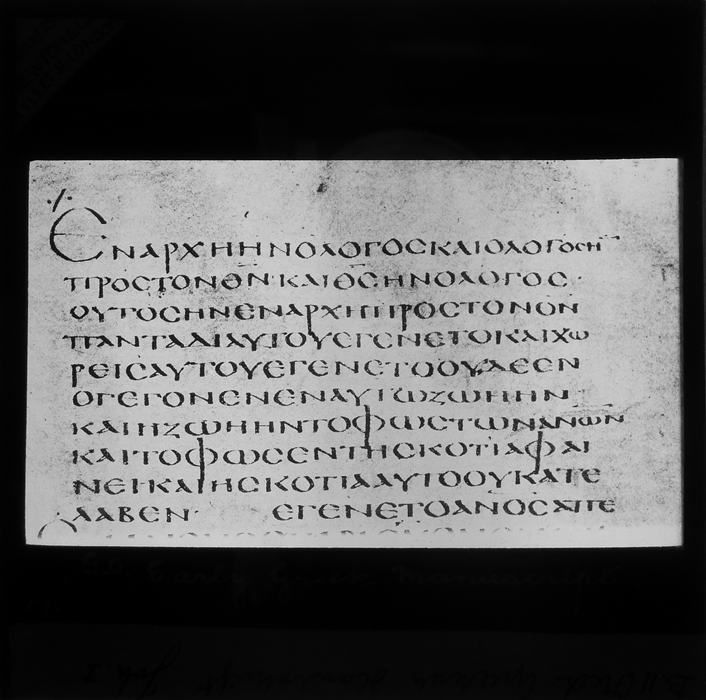 ΕΝΑΡΧΗΗΝΟΛΟΓΟϹΚΑΙΟΛΟΓΟϹΗ
ΠΡΟϹΤΟΝΘΝ·ΚΑΙΘϹΗΝΟΛΟΓΟϹ·
ΟΥΤΟϹΗΝΕΝΑΡΧΗΠΡΟϹΤΟΝΘΝ
ΠΑΝΤΑΔΙΑΥΤΟΥΕΓΕΝΕΤΟΚΑΙΧΩ
ΡΕΙϹΑΥΤΟΥΕΓΕΝΕΤΟΟΥΔΕΕΝ
ΟΓΕΓΟΝΕΝΕΝΑΥΤΩΖΩΗΗΝ
ΚΑΙΗΖΩΗΗΝΤΟΦΩϹΤΩΝΑΝΩΝ
ΚΑΙΤΟΦΩϹΕΝΤΗϹΚΟΤΙΑΦΑΙ
ΝΕΙΚΑΙΗϹΚΟΤΙΑΑΥΤΟΟΥΚΑΤΕ
ΛΑΒΕΝ· ΕΓΕΝΕΤΟΑΝΟϹΑΠΕ
Early Greek Manuscript